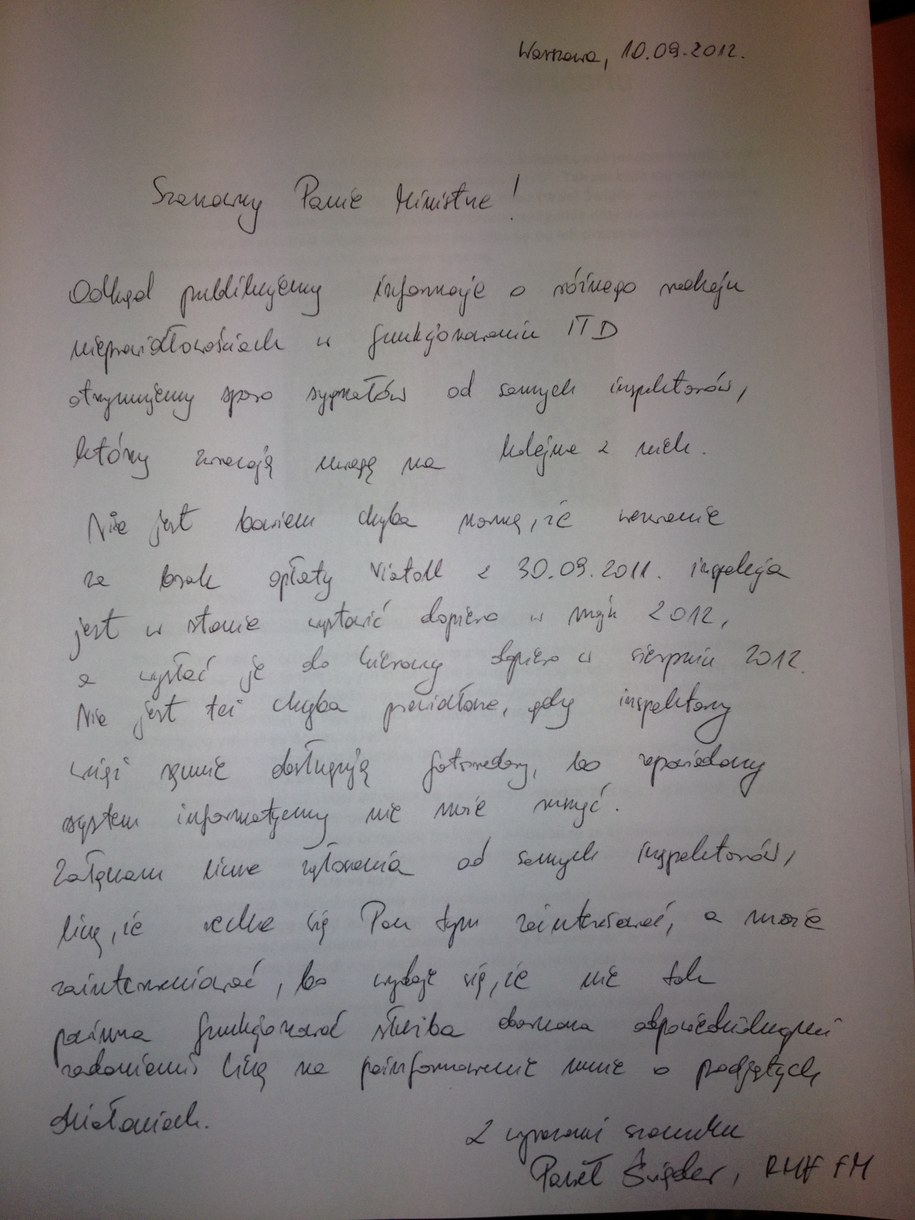 Warszawa, 10.09.2012.
Szanowny Panie Ministrze!
Odkąd publikujemy informacje o różnego rodzaju
nieprawidłowościach w funkcjonowaniu ITD
otrzymujemy sporo sygnałów od samych inspektorów,
którzy zwracają uwagę na kolejne z nich.
Nie jest bowiem chyba normą, że wezwanie
za brak opłaty Viatoll z 30.09.2011. inspekcja
jest w stanie wystawić dopiero w maju 2012,
a wysłać je do kierowcy dopiero w sierpniu 2012.
Nie jest też chyba prawidłowe, gdy inspektorzy
wciąż ręcznie obsługują fotoradary, bo zapowiadany
system informatyczny nie może ruszyć.
Załączam liczne zgłoszenia od samych inspektorów,
licząc, że zechce się Pan tym zainteresować, a może
zainterweniować, bo wydaje się, że nie tak
powinna funkcjonować służba obarczona odpowiedzialnymi
zadaniami. Liczę na poinformowanie mnie o podjętych
działaniach.
Z wyrazami szacunku
Paweł Świąder, RMF FM